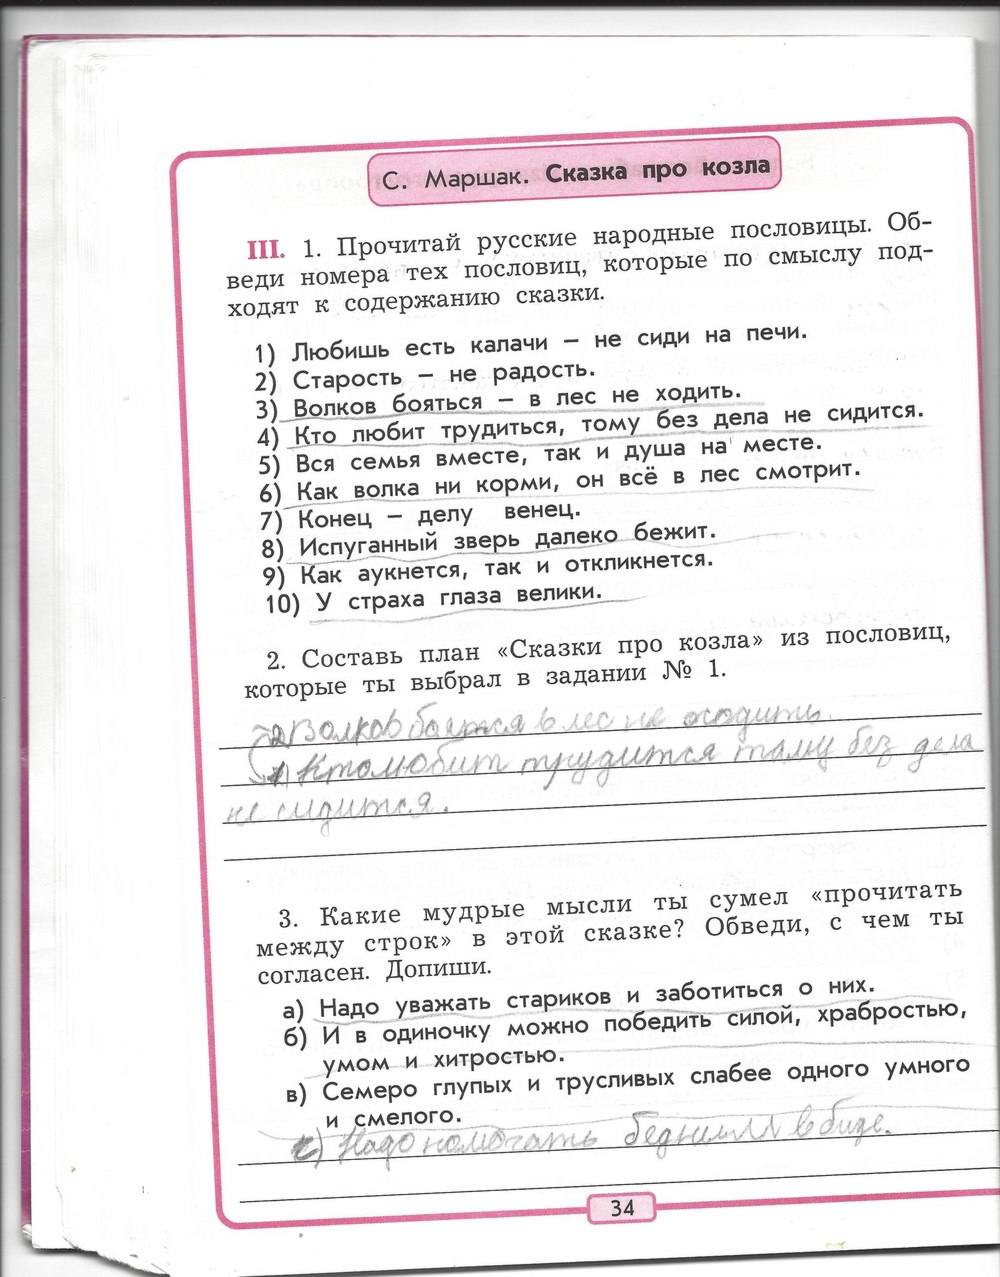 С. Маршак. Сказка про козла
III. 1. Прочитай русские народные пословицы. Об-
веди номера тех пословиц, которые по смыслу под-
ходят к содержанию сказки.
1) Любишь есть калачи – не сиди на печи.
2) Старость – не радость.
3) Волков бояться – в лес не ходить.
4) Кто любит трудиться, тому без дела не сидится.
5) Вся семья вместе, так и душа на месте.
6) Как волка ни корми, он всё в лес смотрит.
7) Конец – делу венец.
8) Испуганный зверь далеко бежит.
9) Как аукнется, так и откликнется.
10) У страха глаза велики.
2. Составь план «Сказки про козла» из пословиц,
которые ты выбрал в задании № 1.
2) Волков боятся в лес не ходить.
1) Кто любит трудится таму без дела
не сидится.
3. Какие мудрые мысли ты сумел «прочитать
между строк» в этой сказке? Обведи, с чем ты
согласен. Допиши.
а) Надо уважать стариков и заботиться о них.
б) И в одиночку можно победить силой, храбростью,
умом и хитростью.
в) Семеро глупых и трусливых слабее одного умного
и смелого.
г) Надо помогать бедным в биде.
34